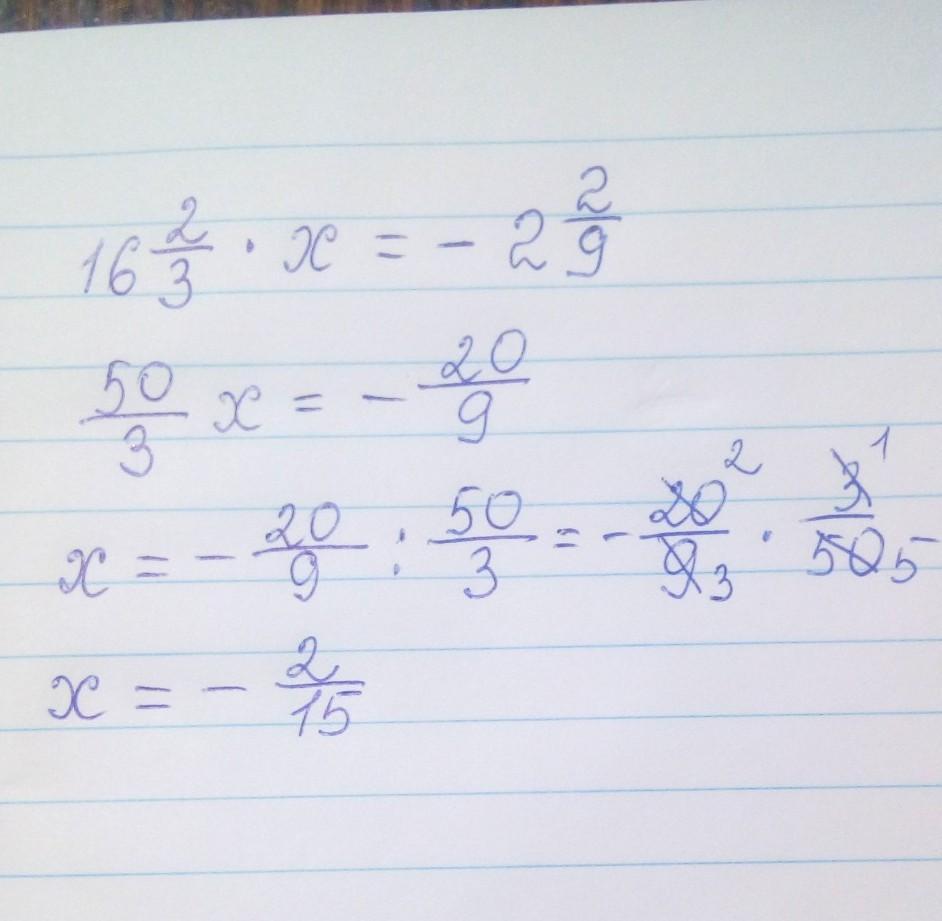 16 2/3 · x = - 2 2/9
50/3 x = - 20/9
x = - 20/9 : 50/3 = - 20 2/9 3 · 3 1/50 5
x = - 2/15